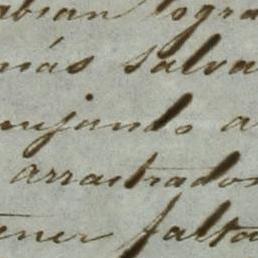 abian logra
más salva
mujando a
arrastrados
tener falta